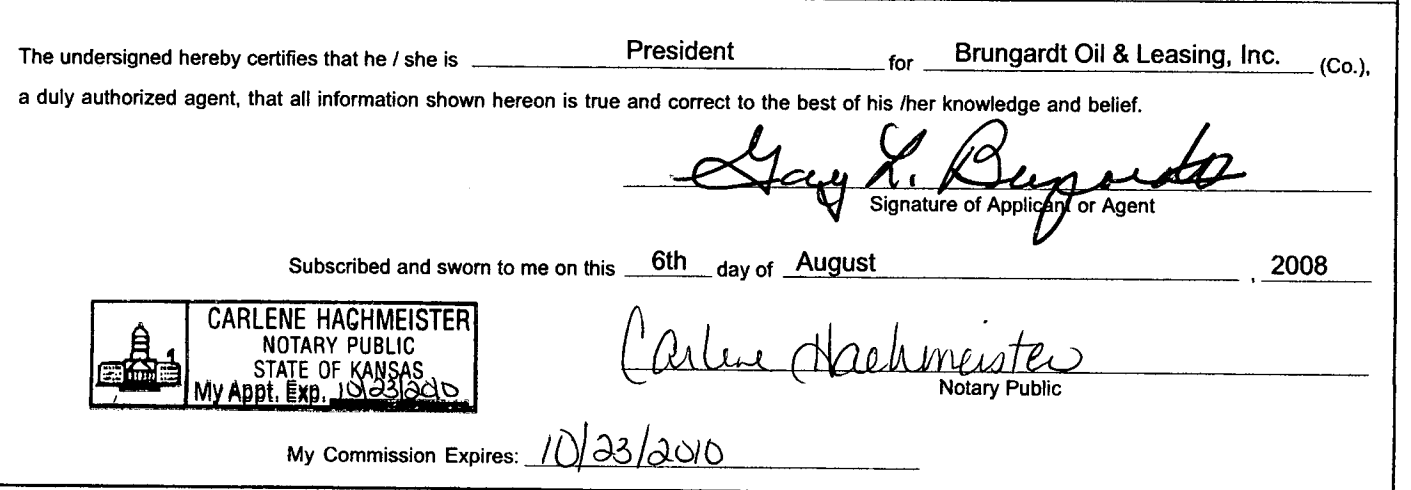 The undersigned hereby certifies that he / she is President for Brungardt Oil & Leasing, Inc. (Co.),
a duly authorized agent, that all information shown hereon is true and correct to the best of his /her knowledge and belief.
Gary L. Brungardt
Signature of Applicant or Agent
Subscribed and sworn to me on this 6th day of August , 2008
CARLENE HACHMEISTER
NOTARY PUBLIC
STATE OF KANSAS
My Appt. Exp. 10/23/2010
Carlene Hachmeister
Notary Public
My Commission Expires: 10/23/2010